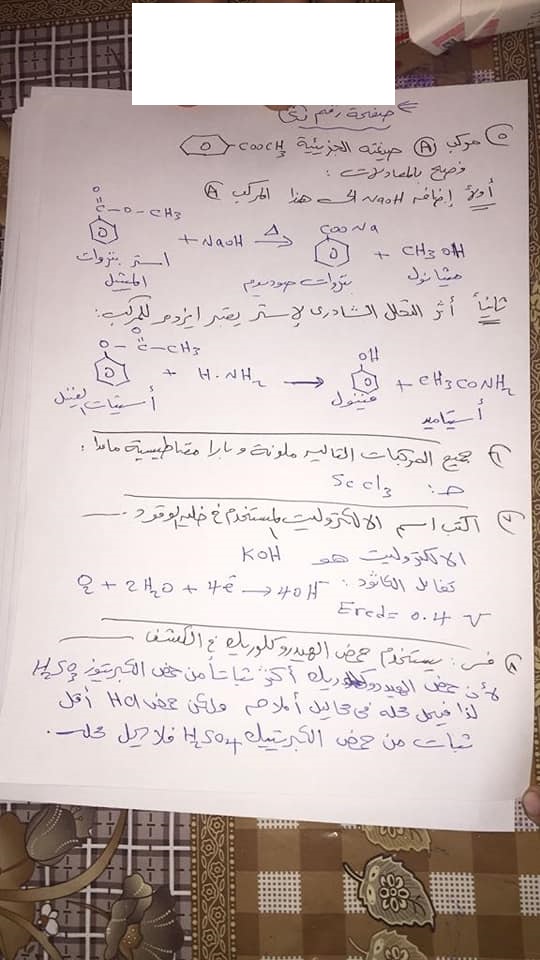 صفحة رقم
٥ مركب A صيغته الجزيئية COOCH3
وضح بالمعادلات :
أولاً إضافة NaOH إلى هذا المركب A
O
C-O-CH3 + NaOH Δ→ COONa + CH3OH
استر بنزوات الميثيل بنزوات صوديوم ميثانول
ثانياً أثر التحلل النشادرى لإستر يعتبر ايزومر للمركب :
O-C-CH3 + H.NH2 → OH + CH3CONH2
O
أسيتات الفينيل فينول أسيتاميد
٦ جميع المركبات التاليه ملونة وبارا مغناطيسية ماعدا :
ScCl3
٧ اكتب اسم الالكتروليت المستخدم فى خلية الوقود
الالكتروليت هو KOH
تفاعل الكاثود : O2 + 2H2O + 4e- → 4OH-
Ered = 0.4 V
٨ فسر : يستخدم حمض الهيدروكلوريك فى الكشف
لأن حمض الهيدروكلوريك أكثر ثباتاً من حمض الكبريتوز H2SO3
لذا فيحل محله فى محاليل أملاحه ولكن حمض HCl أقل
ثبات من حمض الكبريتيك H2SO4 فلا يحل محله .